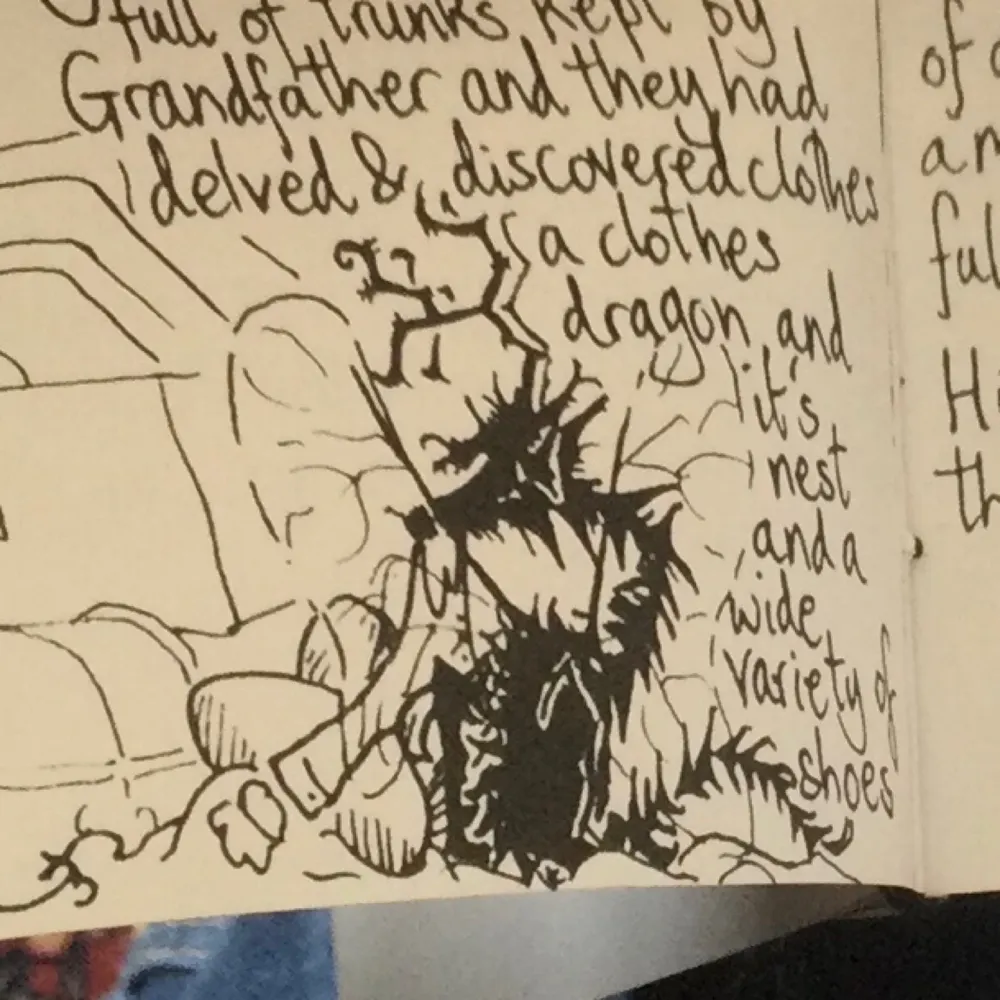 full of trunks kept by
Grandfather and they had
delved & discovered clothes
a clothes
dragon and
it's
nest
and a
wide
variety of
shoes
of
a
ful
H
th